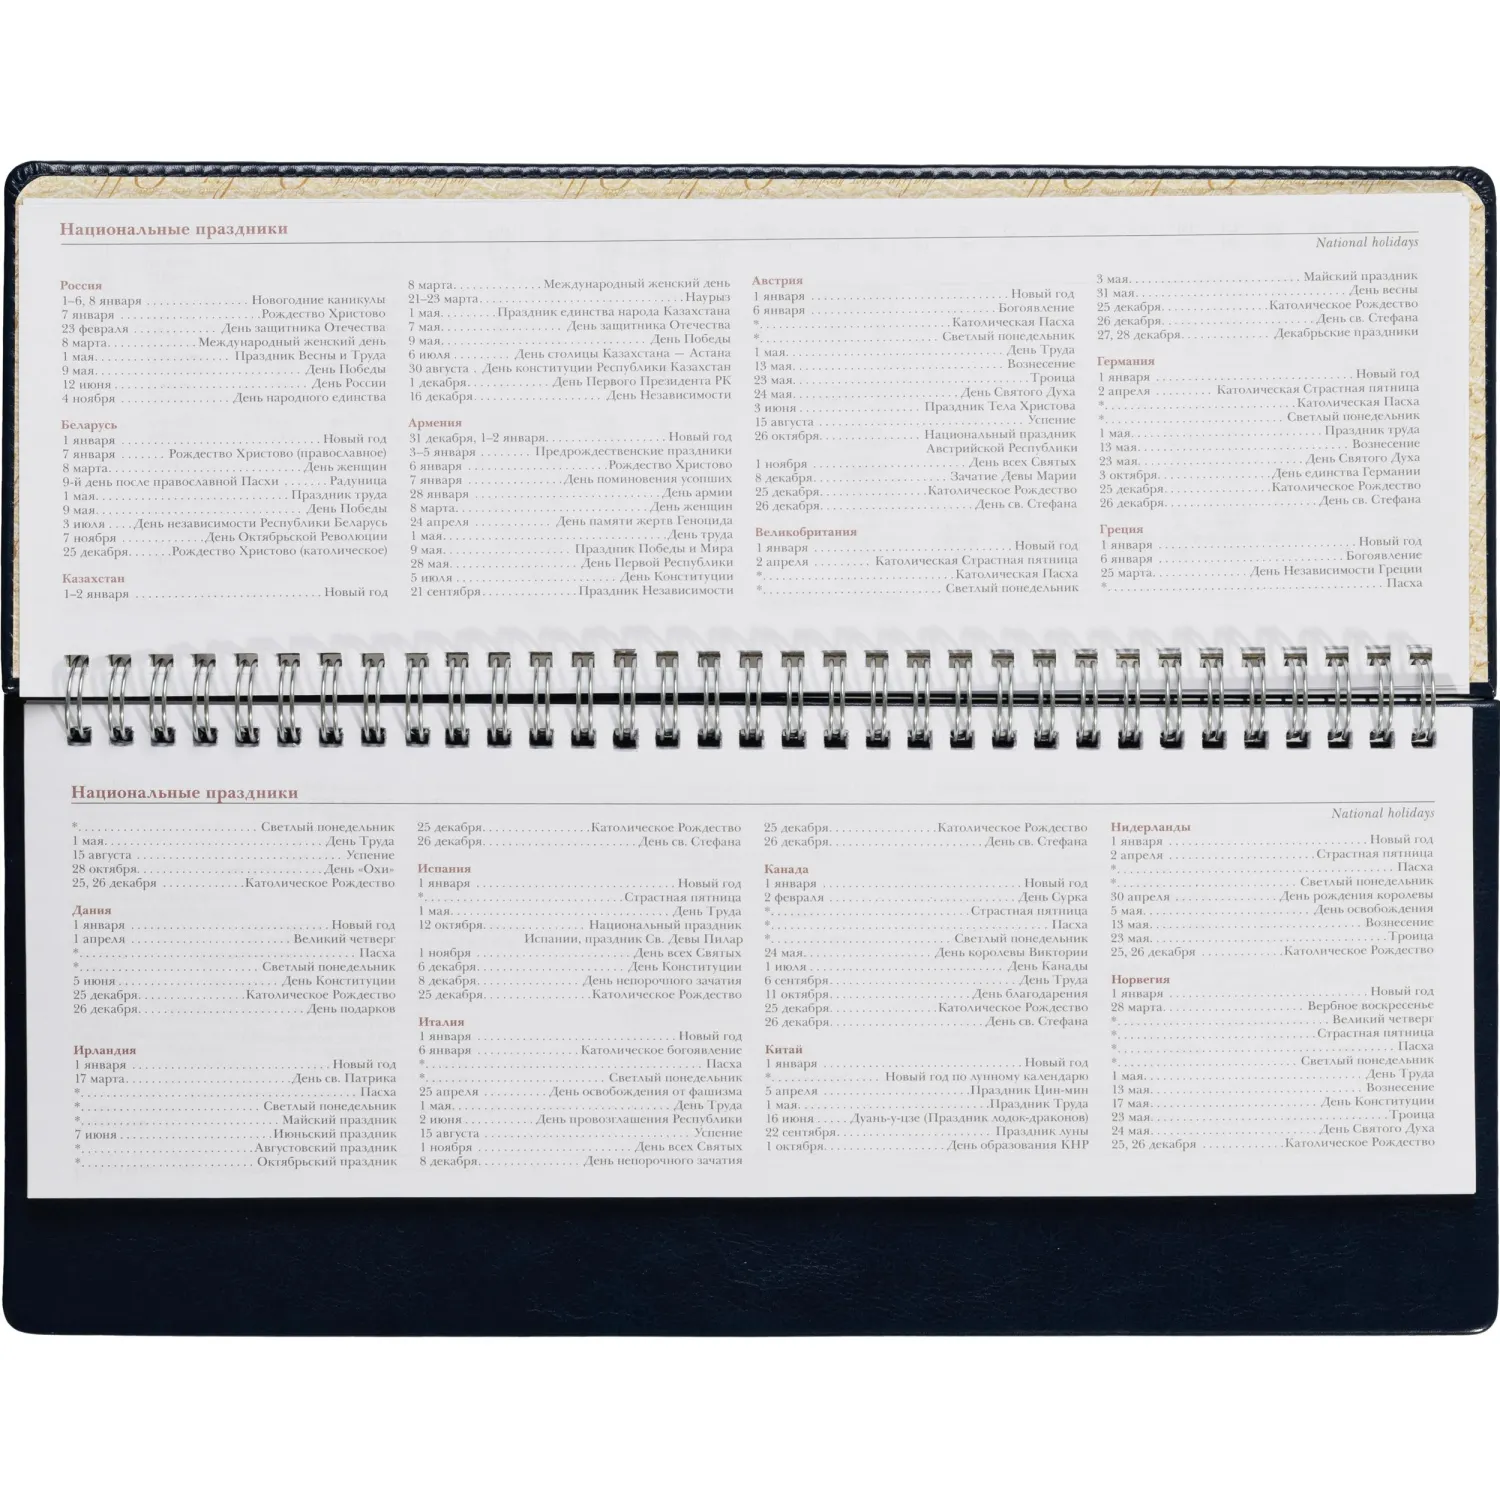 Национальные праздники
National holidays
Россия
1–6, 8 января . . . . . . . . . . . . . . . Новогодние каникулы
7 января . . . . . . . . . . . . . . . . . . . . Рождество Христово
23 февраля . . . . . . . . . . . . День защитника Отечества
8 марта. . . . . . . . . . . . . Международный женский день
1 мая. . . . . . . . . . . . . . . . . . . Праздник Весны и Труда
9 мая. . . . . . . . . . . . . . . . . . . . . . . . . . . . День Победы
12 июня . . . . . . . . . . . . . . . . . . . . . . . . . . День России
4 ноября . . . . . . . . . . . . . . . День народного единства
Беларусь
1 января . . . . . . . . . . . . . . . . . . . . . . . . . . . Новый год
7 января . . . . . . Рождество Христово (православное)
8 марта. . . . . . . . . . . . . . . . . . . . . . . . . День женщин
9-й день после православной Пасхи . . . . . . Радуница
1 мая. . . . . . . . . . . . . . . . . . . . . . . . . Праздник труда
9 мая. . . . . . . . . . . . . . . . . . . . . . . . . . . . День Победы
3 июля . . . .День независимости Республики Беларусь
7 ноября . . . . . . . . . . . .День Октябрьской Революции
25 декабря. . . . . .Рождество Христово (католическое)
Казахстан
1–2 января . . . . . . . . . . . . . . . . . . . . . . . . . Новый год
8 марта. . . . . . . . . . . . Международный женский день
21–23 марта. . . . . . . . . . . . . . . . . . . . . . . . . . .Наурыз
1 мая. . . . . . . .Праздник единства народа Казахстана
7 мая. . . . . . . . . . . . . . . . .День защитника Отечества
9 мая. . . . . . . . . . . . . . . . . . . . . . . . . . . .День Победы
6 июля . . . . . . . . День столицы Казахстана — Астана
30 августа . . День конституции Республики Казахстан
1 декабря. . . . . . . . . . . . День Первого Президента РК
16 декабря. . . . . . . . . . . . . . . . . .День Независимости
Армения
31 декабря, 1–2 января. . . . . . . . . . . . . . . . Новый год
3–5 января . . . . . . . . Предрождественские праздники
6 января . . . . . . . . . . . . . . . . . . .Рождество Христово
7 января . . . . . . . . . . . . . .День поминовения усопших
28 января . . . . . . . . . . . . . . . . . . . . . . . . . День армии
8 марта. . . . . . . . . . . . . . . . . . . . . . . . . .День женщин
24 апреля . . . . . . . . . . . День памяти жертв Геноцида
1 мая. . . . . . . . . . . . . . . . . . . . . . . . . . . . . .День труда
9 мая. . . . . . . . . . . . . . . . . Праздник Победы и Мира
28 мая. . . . . . . . . . . . . . . . . .День Первой Республики
5 июля . . . . . . . . . . . . . . . . . . . . . . День Конституции
21 сентября. . . . . . . . . . . . . Праздник Независимости
Австрия
1 января . . . . . . . . . . . . . . . . . . . . . . . . . . .Новый год
6 января . . . . . . . . . . . . . . . . . . . . . . . . . Богоявление
*. . . . . . . . . . . . . . . . . . . . . . . . . Католическая Пасха
*. . . . . . . . . . . . . . . . . . . . . . . . Светлый понедельник
1 мая. . . . . . . . . . . . . . . . . . . . . . . . . . . . . День Труда
13 мая. . . . . . . . . . . . . . . . . . . . . . . . . . . .Вознесение
23 мая. . . . . . . . . . . . . . . . . . . . . . . . . . . . . . . Троица
24 мая. . . . . . . . . . . . . . . . . . . . . .День Святого Духа
3 июня . . . . . . . . . . . . . . . . Праздник Тела Христова
15 августа . . . . . . . . . . . . . . . . . . . . . . . . . . . Успение
26 октября. . . . . . . . . . . . . . Национальный праздник
Австрийской Республики
1 ноября . . . . . . . . . . . . . . . . . . . . . День всех Святых
8 декабря. . . . . . . . . . . . . . . . . . Зачатие Девы Марии
25 декабря. . . . . . . . . . . . . . .Католическое Рождество
26 декабря. . . . . . . . . . . . . . . . . . . . .День св. Стефана
Великобритания
1 января . . . . . . . . . . . . . . . . . . . . . . . . . . . Новый год
2 апреля . . . . . . . . . Католическая Страстная пятница
*. . . . . . . . . . . . . . . . . . . . . . . . . Католическая Пасха
*. . . . . . . . . . . . . . . . . . . . . . . . Светлый понедельник
3 мая. . . . . . . . . . . . . . . . . . . . . . . Майский праздник
31 мая. . . . . . . . . . . . . . . . . . . . . . . . . . . .День весны
25 декабря. . . . . . . . . . . . . . Католическое Рождество
26 декабря. . . . . . . . . . . . . . . . . . . . .День св. Стефана
27, 28 декабря. . . . . . . . . . . . .Декабрьские праздники
Германия
1 января . . . . . . . . . . . . . . . . . . . . . . . . . . . Новый год
2 апреля . . . . . . . . . Католическая Страстная пятница
*. . . . . . . . . . . . . . . . . . . . . . . . .Католическая Пасха
*. . . . . . . . . . . . . . . . . . . . . . . . Светлый понедельник
1 мая. . . . . . . . . . . . . . . . . . . . . . . . . Праздник труда
13 мая. . . . . . . . . . . . . . . . . . . . . . . . . . . . Вознесение
23 мая. . . . . . . . . . . . . . . . . . . . . .День Святого Духа
3 октября. . . . . . . . . . . . . . . .День единства Германии
25 декабря. . . . . . . . . . . . . . Католическое Рождество
26 декабря. . . . . . . . . . . . . . . . . . . . .День св. Стефана
Греция
1 января . . . . . . . . . . . . . . . . . . . . . . . . . . . Новый год
6 января . . . . . . . . . . . . . . . . . . . . . . . . . Богоявление
25 марта. . . . . . . . . . . . . .День Независимости Греции
*. . . . . . . . . . . . . . . . . . . . . . . . . . . . . . . . . . . . Пасха
Национальные праздники
National holidays
*. . . . . . . . . . . . . . . . . . . . . . . . Светлый понедельник
1 мая. . . . . . . . . . . . . . . . . . . . . . . . . . . . .День Труда
15 августа . . . . . . . . . . . . . . . . . . . . . . . . . . . Успение
28 октября. . . . . . . . . . . . . . . . . . . . . . . . .День «Охи»
25, 26 декабря . . . . . . . . . . .Католическое Рождество
Дания
1 января . . . . . . . . . . . . . . . . . . . . . . . . . . . Новый год
1 апреля . . . . . . . . . . . . . . . . . . . . . Великий четверг
*. . . . . . . . . . . . . . . . . . . . . . . . . . . . . . . . . . . . Пасха
*. . . . . . . . . . . . . . . . . . . . . . . . Светлый понедельник
5 июня . . . . . . . . . . . . . . . . . . . . . .День Конституции
25 декабря. . . . . . . . . . . . . . Католическое Рождество
26 декабря. . . . . . . . . . . . . . . . . . . . . .День подарков
Ирландия
1 января . . . . . . . . . . . . . . . . . . . . . . . . . . . Новый год
17 марта. . . . . . . . . . . . . . . . . . . . . .День св. Патрика
*. . . . . . . . . . . . . . . . . . . . . . . . . . . . . . . . . . . . Пасха
*. . . . . . . . . . . . . . . . . . . . . . . . Светлый понедельник
*. . . . . . . . . . . . . . . . . . . . . . . . . . Майский праздник
7 июня . . . . . . . . . . . . . . . . . . . . .Июньский праздник
*. . . . . . . . . . . . . . . . . . . . . . . Августовский праздник
*. . . . . . . . . . . . . . . . . . . . . . . Октябрьский праздник
25 декабря. . . . . . . . . . . . . . .Католическое Рождество
26 декабря. . . . . . . . . . . . . . . . . . . . .День св. Стефана
Испания
1 января . . . . . . . . . . . . . . . . . . . . . . . . . . . Новый год
*. . . . . . . . . . . . . . . . . . . . . . . . . . .Страстная пятница
1 мая. . . . . . . . . . . . . . . . . . . . . . . . . . . . .День Труда
12 октября. . . . . . . . . . . . . . Национальный праздник
Испании, праздник Св. Девы Пилар
1 ноября . . . . . . . . . . . . . . . . . . . . . День всех Святых
6 декабря. . . . . . . . . . . . . . . . . . . . День Конституции
8 декабря. . . . . . . . . . . . . . День непорочного зачатия
25 декабря. . . . . . . . . . . . . . .Католическое Рождество
Италия
1 января . . . . . . . . . . . . . . . . . . . . . . . . . . . Новый год
6 января . . . . . . . . . . . . . . Католическое богоявление
*. . . . . . . . . . . . . . . . . . . . . . . . . . . . . . . . . . . . Пасха
*. . . . . . . . . . . . . . . . . . . . . . . . Светлый понедельник
25 апреля . . . . . . . . . .День освобождения от фашизма
1 мая. . . . . . . . . . . . . . . . . . . . . . . . . . . . .День Труда
2 июня . . . . . . . . . . .День провозглашения Республики
15 августа . . . . . . . . . . . . . . . . . . . . . . . . . . . Успение
1 ноября . . . . . . . . . . . . . . . . . . . . . День всех Святых
8 декабря. . . . . . . . . . . . . . День непорочного зачатия
25 декабря. . . . . . . . . . . . . . .Католическое Рождество
26 декабря. . . . . . . . . . . . . . . . . . . . .День св. Стефана
Канада
1 января . . . . . . . . . . . . . . . . . . . . . . . . . . . Новый год
2 февраля . . . . . . . . . . . . . . . . . . . . . . . . . .День Сурка
*. . . . . . . . . . . . . . . . . . . . . . . . . . .Страстная пятница
*. . . . . . . . . . . . . . . . . . . . . . . . . . . . . . . . . . . . Пасха
*. . . . . . . . . . . . . . . . . . . . . . . . Светлый понедельник
24 мая. . . . . . . . . . . . . . . . . .День королевы Виктории
1 июля . . . . . . . . . . . . . . . . . . . . . . . . . . .День Канады
6 сентября . . . . . . . . . . . . . . . . . . . . . . . . .День Труда
11 октября. . . . . . . . . . . . . . . . . . . .День благодарения
25 декабря. . . . . . . . . . . . . . .Католическое Рождество
26 декабря. . . . . . . . . . . . . . . . . . . . .День св. Стефана
Китай
1 января . . . . . . . . . . . . . . . . . . . . . . . . . . . Новый год
*. . . . . . . . . . . . . . . Новый год по лунному календарю
5 апреля . . . . . . . . . . . . . . . . . . . . Праздник Цин-мин
1 мая. . . . . . . . . . . . . . . . . . . . . . . . .Праздник Труда
16 июня . . . . . Дуань-у-цзе (Праздник лодок-драконов)
22 сентября. . . . . . . . . . . . . . . . . . . . .Праздник луны
1 октября. . . . . . . . . . . . . . . . . День образования КНР
Нидерланды
1 января . . . . . . . . . . . . . . . . . . . . . . . . . . . Новый год
2 апреля . . . . . . . . . . . . . . . . . . . .Страстная пятница
*. . . . . . . . . . . . . . . . . . . . . . . . . . . . . . . . . . . . Пасха
*. . . . . . . . . . . . . . . . . . . . . . . . Светлый понедельник
30 апреля . . . . . . . . . . . . . . День рождения королевы
5 мая. . . . . . . . . . . . . . . . . . . . . . . День освобождения
13 мая. . . . . . . . . . . . . . . . . . . . . . . . . . . . Вознесение
23 мая. . . . . . . . . . . . . . . . . . . . . . . . . . . . . . . Троица
25, 26 декабря . . . . . . . . . . . Католическое Рождество
Норвегия
1 января . . . . . . . . . . . . . . . . . . . . . . . . . . . Новый год
28 марта. . . . . . . . . . . . . . . . . . . Вербное воскресенье
*. . . . . . . . . . . . . . . . . . . . . . . . . . . . Великий четверг
*. . . . . . . . . . . . . . . . . . . . . . . . . . .Страстная пятница
*. . . . . . . . . . . . . . . . . . . . . . . . . . . . . . . . . . . . Пасха
*. . . . . . . . . . . . . . . . . . . . . . . . Светлый понедельник
1 мая. . . . . . . . . . . . . . . . . . . . . . . . . . . . .День Труда
13 мая. . . . . . . . . . . . . . . . . . . . . . . . . . . . Вознесение
17 мая. . . . . . . . . . . . . . . . . . . . . .День Конституции
23 мая. . . . . . . . . . . . . . . . . . . . . . . . . . . . . . . Троица
24 мая. . . . . . . . . . . . . . . . . . . . . .День Святого Духа
25, 26 декабря . . . . . . . . . . . Католическое Рождество